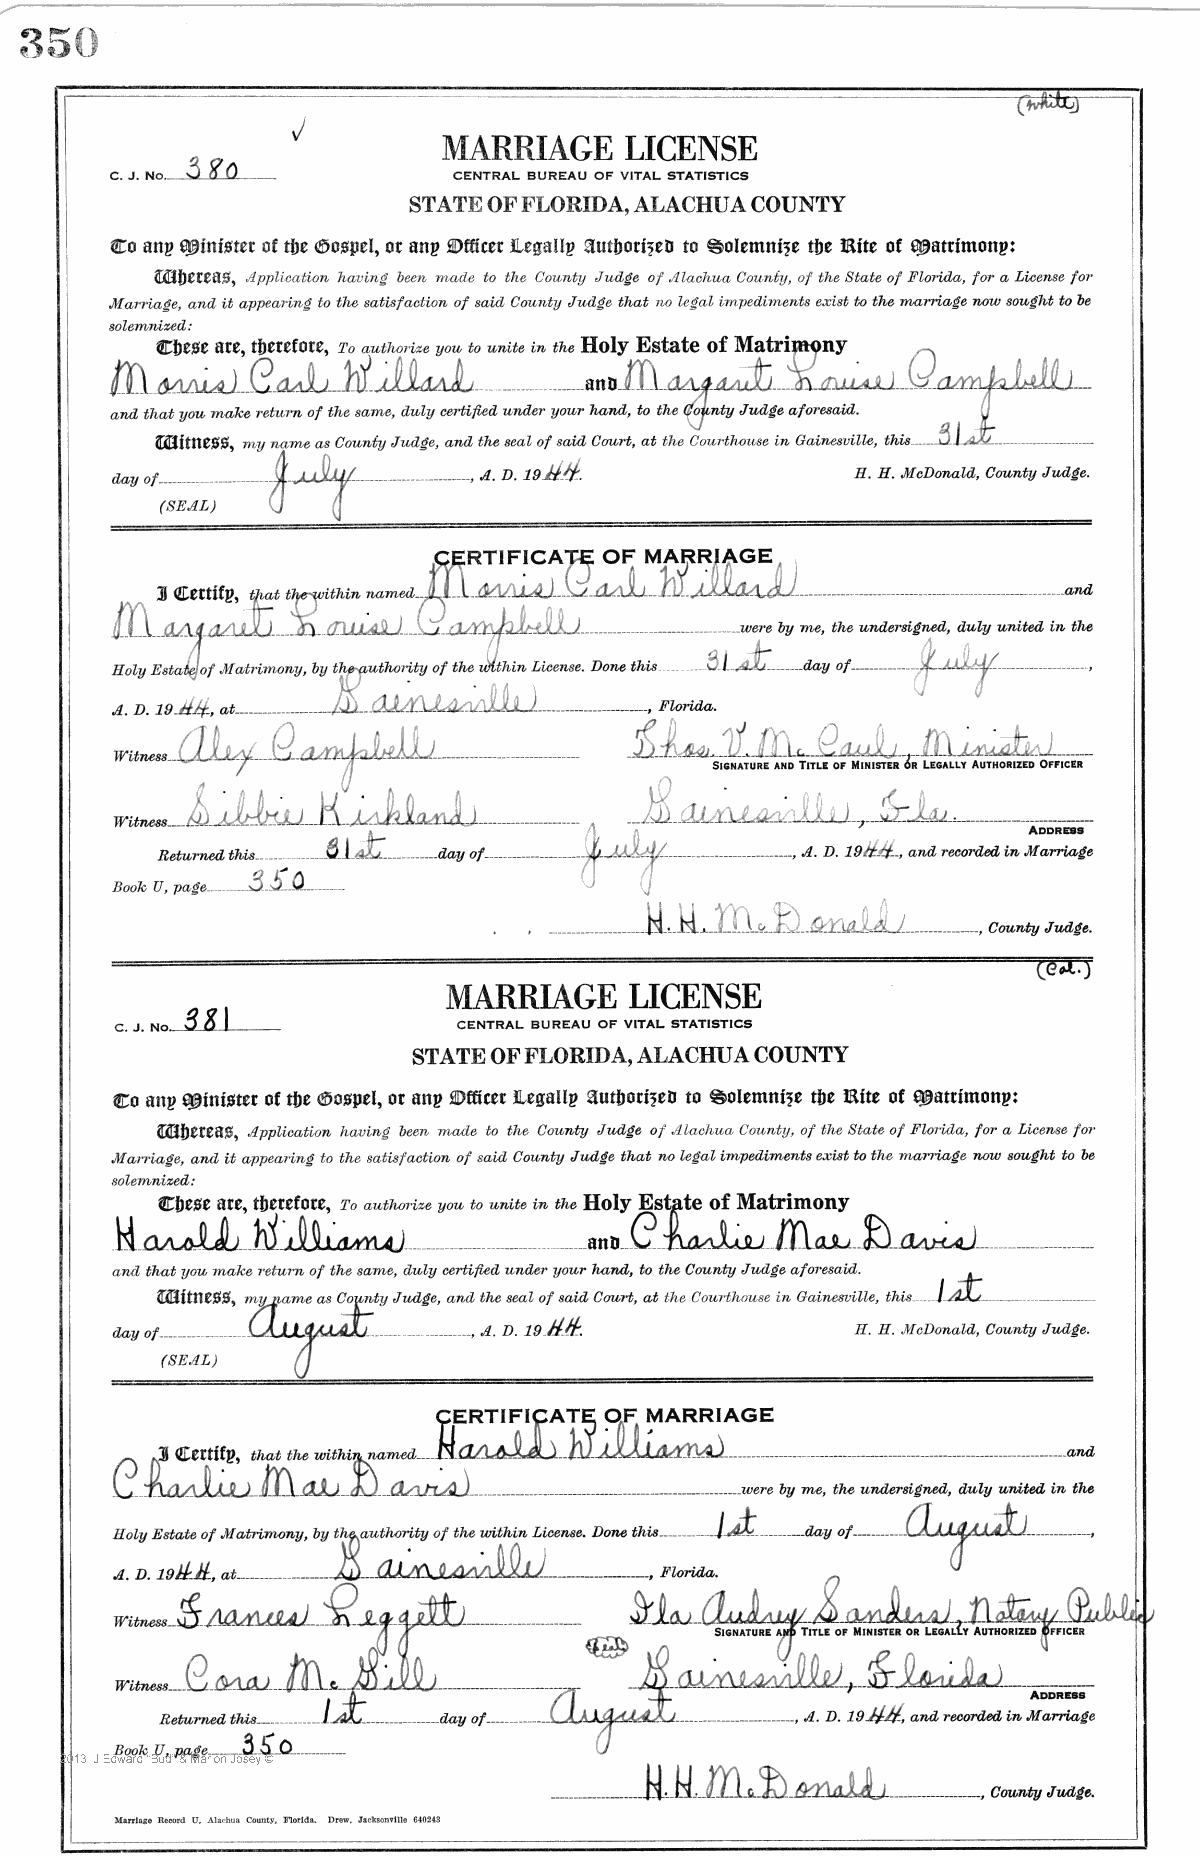 350
(white)
✓
MARRIAGE LICENSE
C. J. No. 380
CENTRAL BUREAU OF VITAL STATISTICS
STATE OF FLORIDA, ALACHUA COUNTY
To any Minister of the Gospel, or any Officer Legally Authorized to Solemnize the Rite of Matrimony:
Whereas, Application having been made to the County Judge of Alachua County, of the State of Florida, for a License for
Marriage, and it appearing to the satisfaction of said County Judge that no legal impediments exist to the marriage now sought to be
solemnized:
These are, therefore, To authorize you to unite in the Holy Estate of Matrimony
Morris Carl Willard and Margaret Louise Campbell
and that you make return of the same, duly certified under your hand, to the County Judge aforesaid.
Witness, my name as County Judge, and the seal of said Court, at the Courthouse in Gainesville, this 31st
day of July, A. D. 1944. H. H. McDonald, County Judge.
(SEAL)
CERTIFICATE OF MARRIAGE
I Certify, that the within named Morris Carl Willard and
Margaret Louise Campbell were by me, the undersigned, duly united in the
Holy Estate of Matrimony, by the authority of the within License. Done this 31st day of July,
A. D. 1944, at Gainesville, Florida.
Witness Alex Campbell Thos. V. McCaul, Minister
SIGNATURE AND TITLE OF MINISTER OR LEGALLY AUTHORIZED OFFICER
Witness Sibbie Kirkland Gainesville, Fla.
ADDRESS
Returned this 31st day of July, A. D. 1944, and recorded in Marriage
Book U, page 350
H. H. McDonald, County Judge.
(Col.)
MARRIAGE LICENSE
C. J. No. 381
CENTRAL BUREAU OF VITAL STATISTICS
STATE OF FLORIDA, ALACHUA COUNTY
To any Minister of the Gospel, or any Officer Legally Authorized to Solemnize the Rite of Matrimony:
Whereas, Application having been made to the County Judge of Alachua County, of the State of Florida, for a License for
Marriage, and it appearing to the satisfaction of said County Judge that no legal impediments exist to the marriage now sought to be
solemnized:
These are, therefore, To authorize you to unite in the Holy Estate of Matrimony
Harold Williams and Charlie Mae Davis
and that you make return of the same, duly certified under your hand, to the County Judge aforesaid.
Witness, my name as County Judge, and the seal of said Court, at the Courthouse in Gainesville, this 1st
day of August, A. D. 1944. H. H. McDonald, County Judge.
(SEAL)
CERTIFICATE OF MARRIAGE
I Certify, that the within named Harold Williams and
Charlie Mae Davis were by me, the undersigned, duly united in the
Holy Estate of Matrimony, by the authority of the within License. Done this 1st day of August,
A. D. 1944, at Gainesville, Florida.
Witness Frances Leggett Ila Audrey Sanders, Notary Public
SIGNATURE AND TITLE OF MINISTER OR LEGALLY AUTHORIZED OFFICER
(Seal)
Witness Cora McGill Gainesville, Florida
ADDRESS
Returned this 1st day of August, A. D. 1944, and recorded in Marriage
Book U, page 350
2013 J Edward "Bud" & Marion Josey ©
H. H. McDonald, County Judge.
Marriage Record U, Alachua County, Florida. Drew, Jacksonville 640243